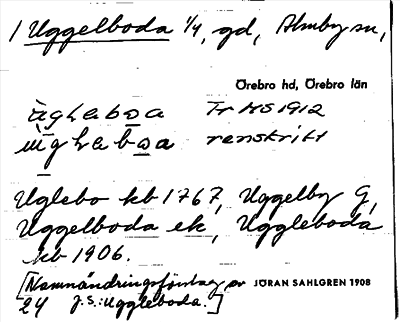 1 Uggelboda 1/4, gd, Almby sn,
Örebro hd, Örebro län
ùglaboa Fr MS 1912
renskrift
Uglebo kb 1767, Uggelby G,
Uggelboda ek, Uggleboda
kb 1906.
[Namnändringsförslag av JÖRAN SAHLGREN 1908
24 J.S.: Uggleboda.]